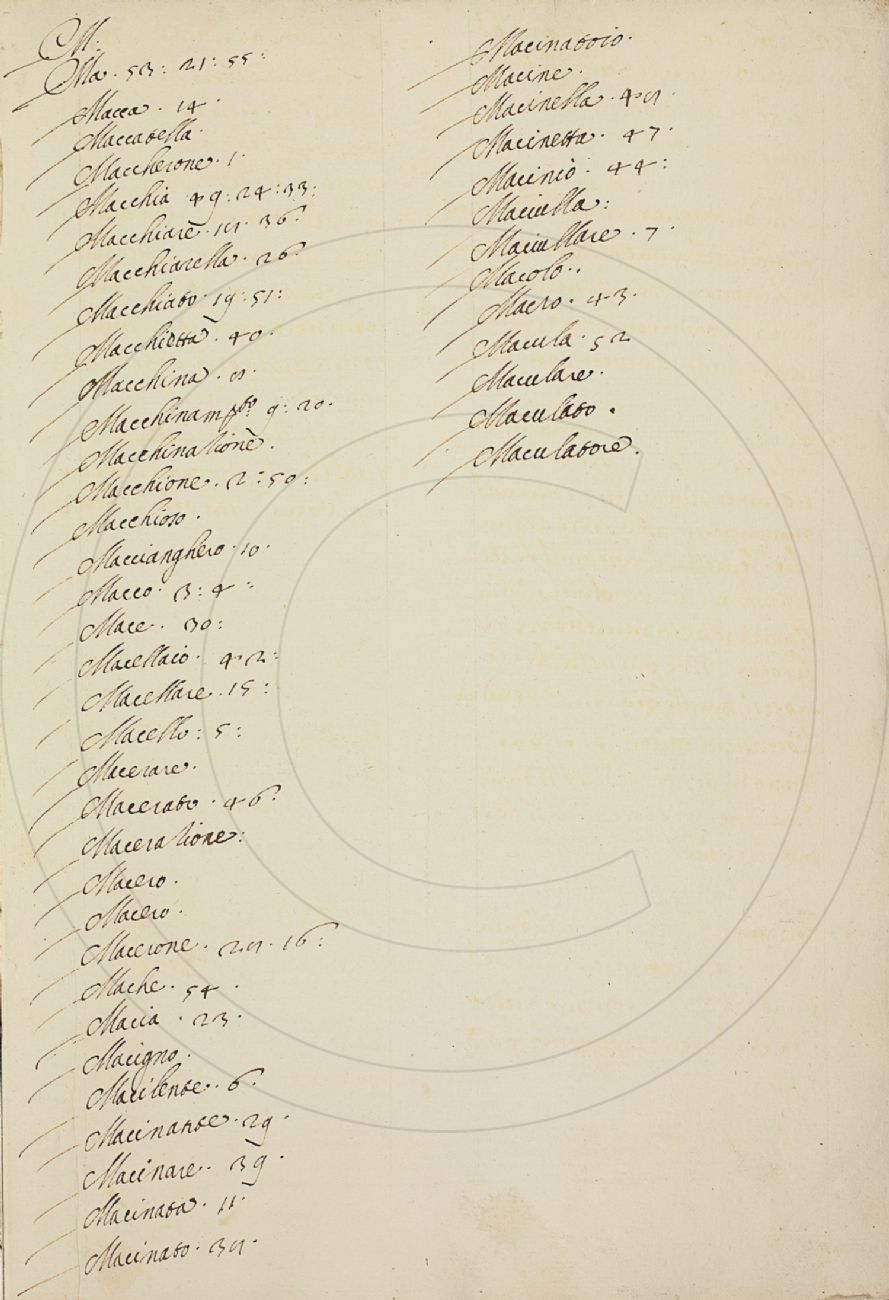 M.
Ma. 53: 21: 55:
Macca. 14.
Maccatella.
Maccherone. 1.
Macchia. 49: 24: 33:
Macchiare. 18. 36:
Macchiarella. 26:
Macchiato. 19: 51:
Macchietta. 40.
Macchina. 8.
Macchinam.to 9: 20.
Macchinatione.
Macchione. 2: 50:
Macchioso.
Maccianghero. 10.
Macco. 3: 4:
Mace. 30:
Macellaio. 42:
Macellare. 15:
Macello: 5:
Macerare.
Macerato. 46:
Maceratione:
Macero.
Macero.
Macerone. 28. 16:
Mache. 54.
Macia. 23.
Macigno.
Macilente. 6.
Macinante. 29.
Macinare. 39.
Macinata. 11.
Macinato. 38.
Macinatoio.
Macine.
Macinella. 48.
Macinetta. 47.
Macinio. 44:
Maciulla:
Maciullare. 7.
Macolo.
Macro. 43.
Macula. 52
Maculare.
Maculato.
Maculatore.